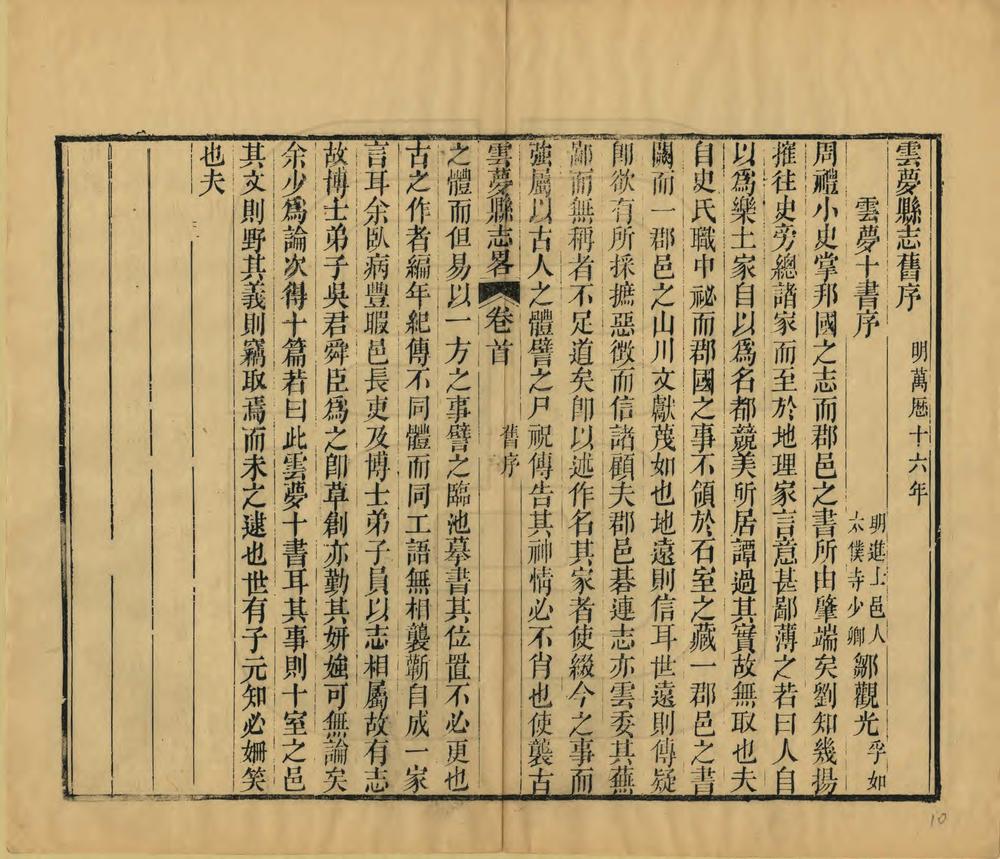 雲夢縣志舊序　明萬厯十六年
雲夢十書序　明進士邑人太僕寺少卿鄒觀光孚如
周禮小史掌邦國之志而郡邑之書所由肇端矣劉知幾揚
搉往史旁總諸家而至於地理家言意甚鄙薄之若曰人自
以爲樂土家自以爲名都競美所居譚過其實故無取也夫
自史氏職中祕而郡國之事不領於石室之藏一郡邑之書
闕而一郡邑之山川文獻茂如也地遠則信耳世遠則傳疑
卽欲有所採摭惡徵而信諸顧夫郡邑碁連志亦雲委其蕪
鄙而無稱者不足道矣卽以述作名其家者使綴今之事而
強屬以古人之體譬之尸祝傳告其神情必不肖也使襲古
雲夢縣志畧　卷首　舊序
之體而但易以一方之事譬之臨池摹書其位置不必更也
古之作者編年紀傳不同體而同工語無相襲蘄自成一家
言耳余臥病豐暇邑長吏及博士弟子員以志相屬故有志
故博士弟子吳君舜臣爲之卽草創亦勤其妍媸可無論矣
余少爲論次得十篇若曰此雲夢十書耳其事則十室之邑
其文則野其義則竊取焉而未之逮也世有子元知必姍笑
也夫
10